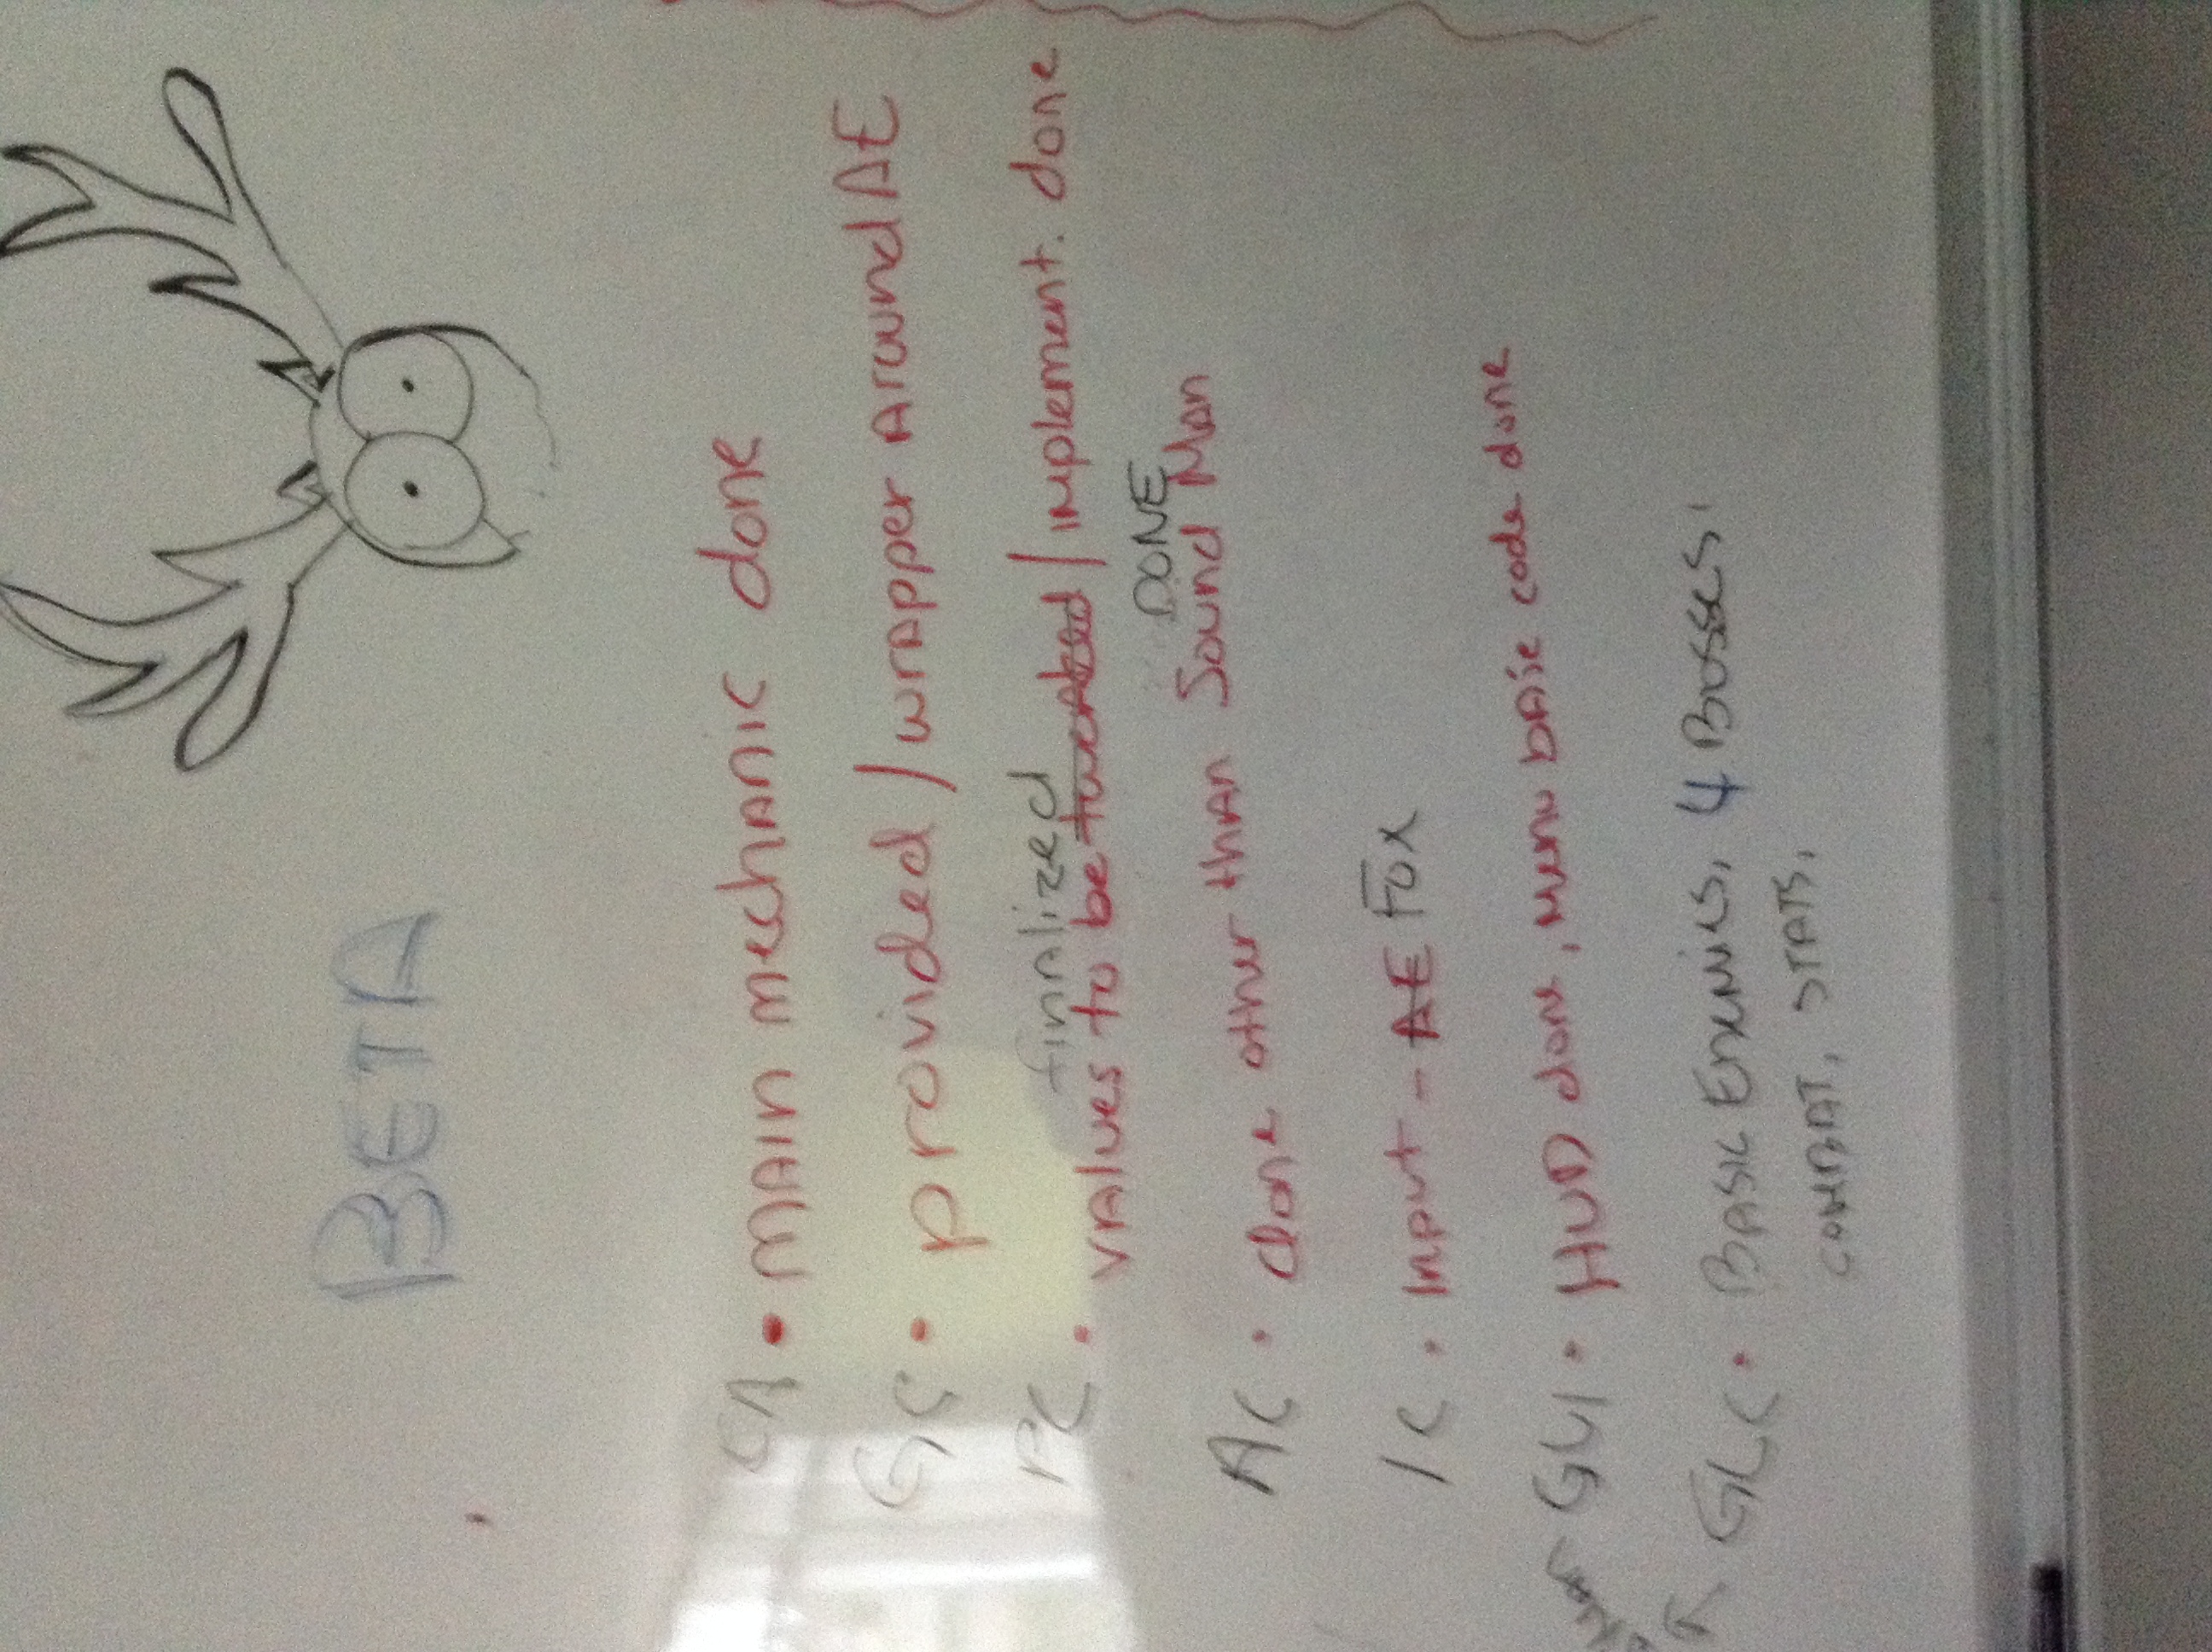 BETA
CA • MAIN mechanic done
GC • provided / wrapper Around AE
finalized
PC • values to be tweaked / implement. done
DONE
AC • done other than Sound Man
IC • Input - AE Fox
GUI • HUD done, Menu basic code done
GLC • BASIC ENEMIES, 4 BOSSES,
COMBAT, STATS,